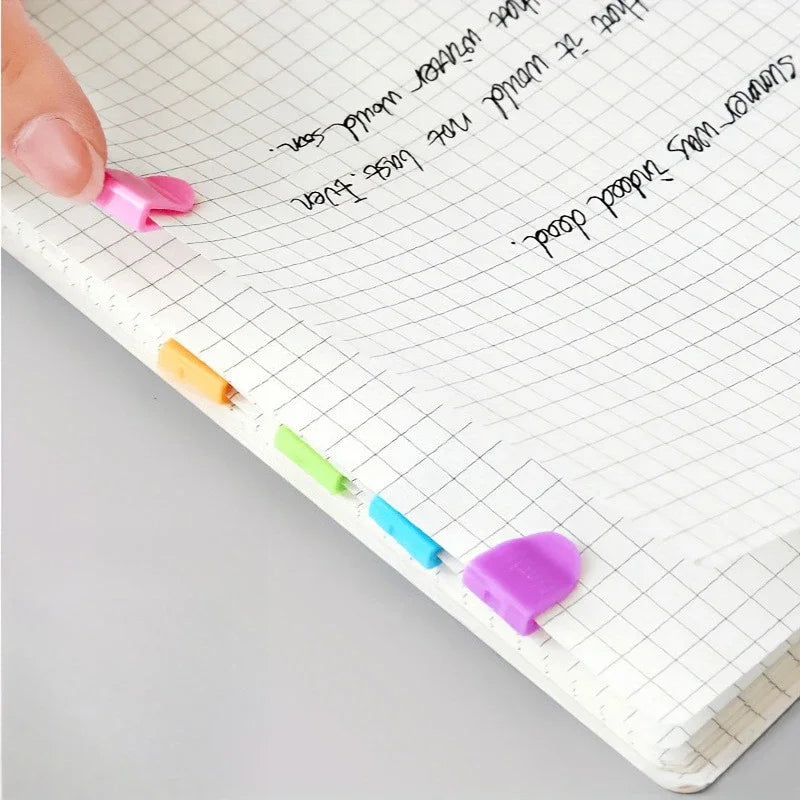 summer was indeed dead.
that it would not last. Even
that winter would soon.